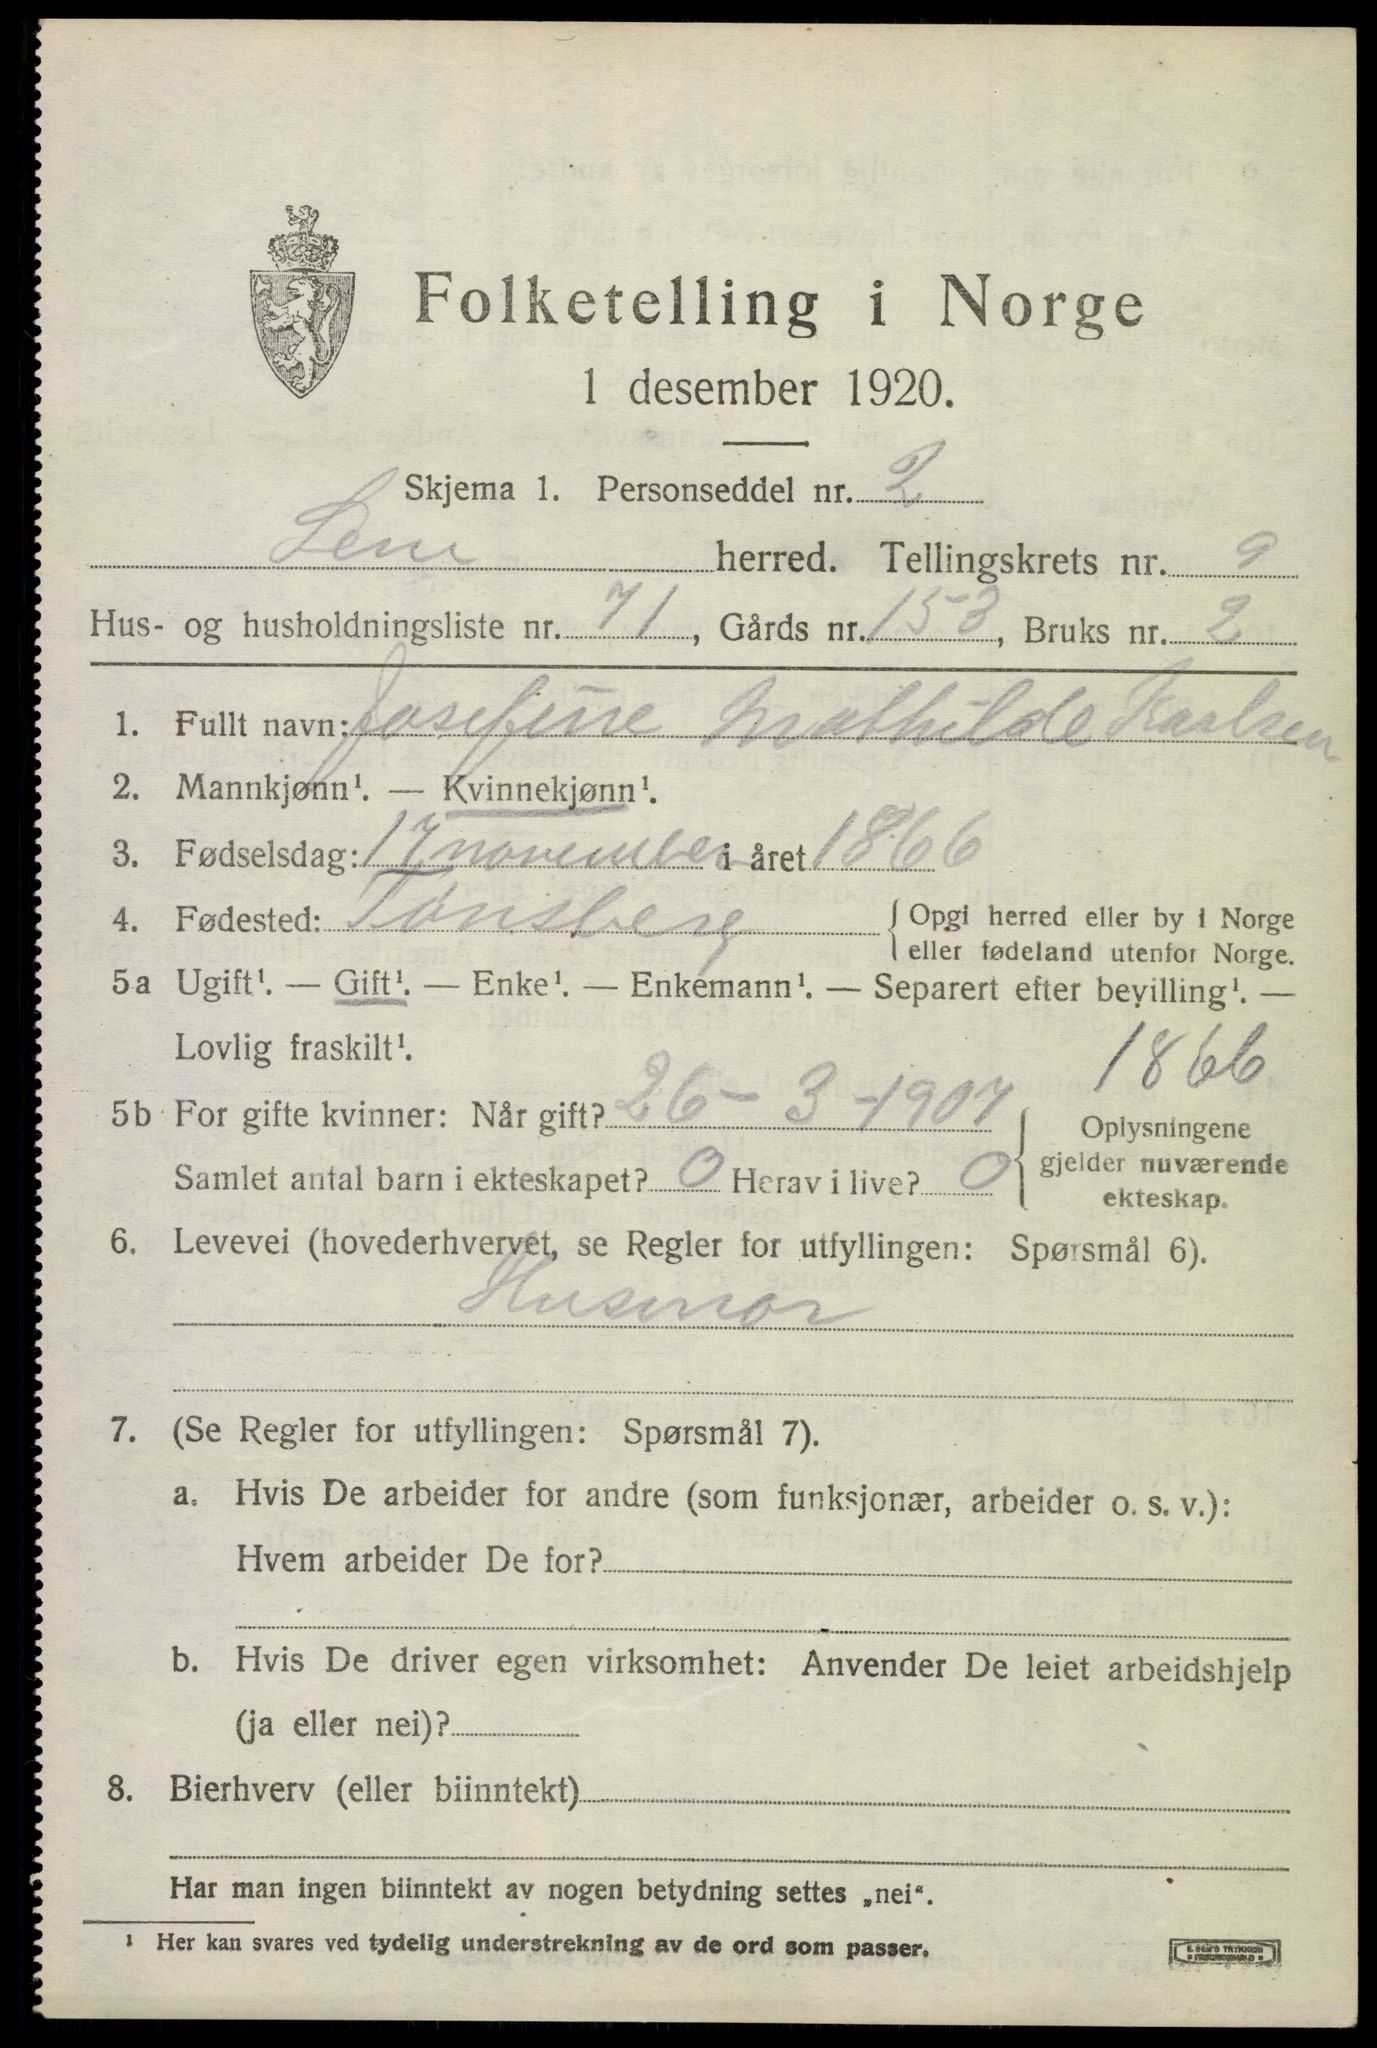 Folketelling i Norge
1 desember 1920.
Skjema 1. Personseddel nr. 2
Sem herred. Tellingskrets nr. 9
Hus- og husholdningsliste nr. 71, Gårds nr. 153, Bruks nr. 2
1. Fullt navn: Josefine Mathilde Karlsen
2. Mannkjønn¹. — Kvinnekjønn¹.
3. Fødselsdag: 17 november i året 1866
4. Fødested: Tønsberg { Opgi herred eller by i Norge
eller fødeland utenfor Norge.
5a Ugift¹. — Gift¹. — Enke¹. — Enkemann¹. — Separert efter bevilling¹. —
Lovlig fraskilt¹.
1866
5b For gifte kvinner: Når gift? 26 - 3 - 1907
Samlet antal barn i ekteskapet? 0 Herav i live? 0
Oplysningene
gjelder nuværende
ekteskap.
6. Levevei (hovederhvervet, se Regler for utfyllingen: Spørsmål 6).
Husmor
7. (Se Regler for utfyllingen: Spørsmål 7).
a. Hvis De arbeider for andre (som funksjonær, arbeider o. s. v.):
Hvem arbeider De for?
b. Hvis De driver egen virksomhet: Anvender De leiet arbeidshjelp
(ja eller nei)?
8. Bierhverv (eller biinntekt)
Har man ingen biinntekt av nogen betydning settes „nei“.
¹ Her kan svares ved tydelig understrekning av de ord som passer.